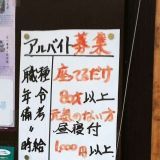 アルバイト募集
職種 座るだけ
年令 80才以上
備考 元気のない方
昼寝付
時給 1,000円以上